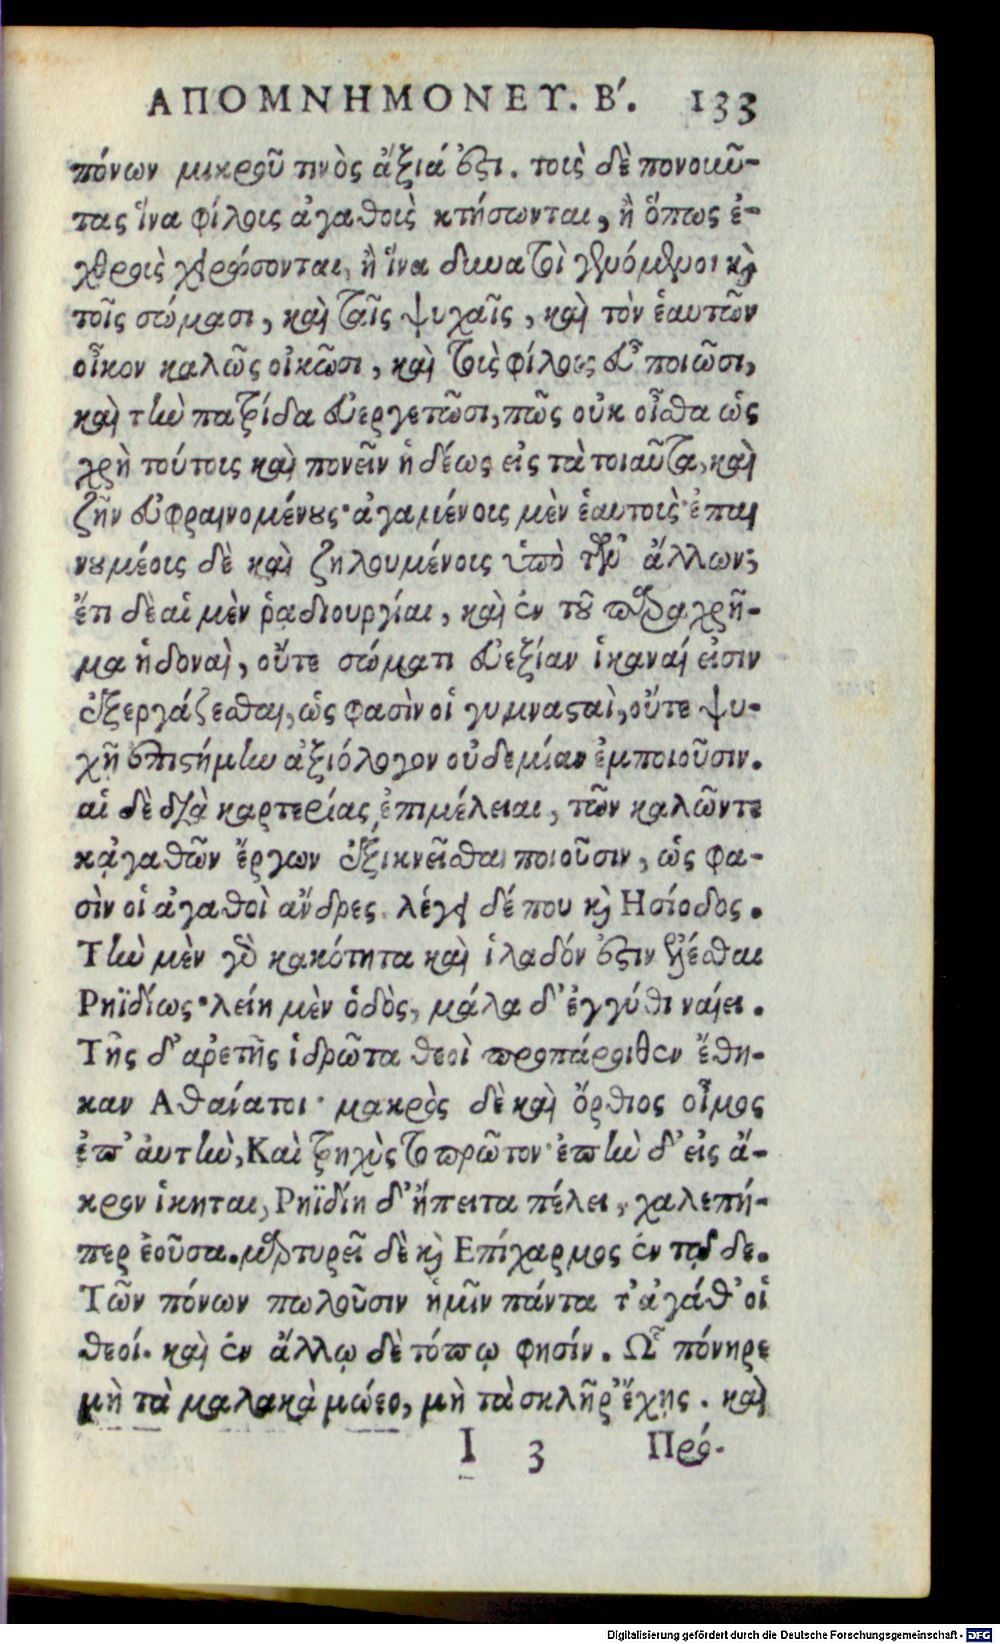 ΑΠΟΜΝΗΜΟΝΕΥ. Β΄. 133
πόνων μικροῦ τινὸς ἄξιά ἐςι. τοις̀ δὲ πονοιῦ-
τας ἵνα φίλοις ἀγαθοις̀ κτήσωνται, ἢ ὅπως ἐ-
χθροις̀ χειρώσονται, ἢ ἵνα δυνατοὶ γενόμενοι καὶ
τοῖς σώμασι, καὶ ταῖς ψυχαῖς, καὶ τὸν ἑαυτῶν
οἶκον καλῶς οἰκῶσι, καὶ τοις̀ φίλοις εὖ ποιῶσι,
καὶ τὴν πατρίδα εὐεργετῶσι, πῶς οὐκ οἶσθα ὡς
χρὴ τούτοις καὶ πονεῖν ἡδέως εἰς τὰ τοιαῦτα, καὶ
ζῆν εὐφραινομένους· ἀγαμένοις μὲν ἑαυτοις̀· ἐπαι
νουμέοις δὲ καὶ ζηλουμένοις ὑπὸ τῶν ἄλλων;
ἔτι δὲ αἱ μὲν ῥαδιουργίαι, καὶ ἐν τοῦ παραχρῆ-
μα ἡδοναὶ, οὔτε σώματι εὐεξίαν ἱκαναί εἰσιν
ἐξεργάζεσθαι, ὡς φασὶν οἱ γυμναςαὶ, οὔτε ψυ-
χῇ ἐπιςήμην ἀξιόλογον οὐδεμίαν ἐμποιοῦσιν.
αἱ δὲ διὰ καρτερίας ἐπιμέλειαι, τῶν καλῶντε
κἀγαθῶν ἔργων ἐξικνεῖσθαι ποιοῦσιν, ὡς φα-
σὶν οἱ ἀγαθοὶ ἄνδρες. λέγει δέ που καὶ Ησίοδος.
Τὴν μὲν γὰρ κακότητα καὶ ἰλαδόν ἐςιν ἑλέσθαι
Ρηϊδίως· λείη μὲν ὁδὸς, μάλα δ' ἐγγύθι ναίει.
Τῆς δ' ἀρετῆς ἱδρῶτα θεοὶ προπάροιθεν ἔθη-
καν Αθαίατοι· μακρὸς δὲ καὶ ὄρθιος οἶμος
ἐπ' ἀυτὴν, Καὶ τρηχὺς τὸ πρῶτον· ἐπὴν δ' εἰς ἄ-
κρον ἵκηται, Ρηϊδίη δ' ἤπειτα πέλει, χαλεπή-
περ ἐοῦσα. μαρτυρεῖ δὲ καὶ Επίχαρμος ἐν τῷ δε.
Τῶν πόνων πωλοῦσιν ἡμῖν πάντα τ' ἀγάθ' οἱ
θεοί. καὶ ἐν ἄλλῳ δὲ τόπῳ φησίν. Ω̃ πόνηρε
μὴ τὰ μαλακὰ μώεο, μὴ τὰ σκλῆρ' ἔχῃς. καὶ
I 3 Πρό-
Digitalisierung gefördert durch die Deutsche Forschungsgemeinschaft - DFG